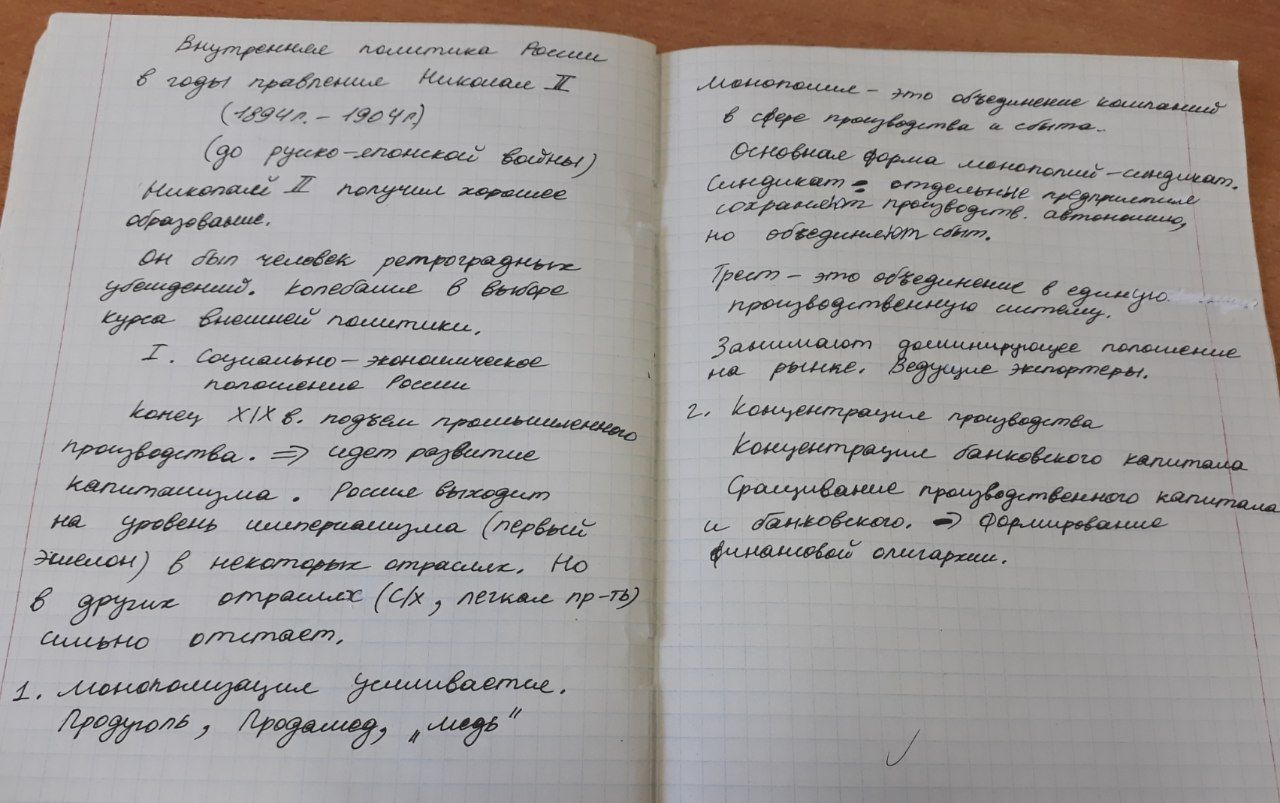 Внутренняя политика России
в годы правления Николая II
(1894г. – 1904г.)
(до руско-японской войны)
Николай II получил хорошее
образование.
Он был человек ретроградных
убеждений. Колебания в выборе
курса внешней политики.
I. Социально-экономическое
положение России
Конец XIX в. подъем промышленного
производства. => идет развитие
капитализма. Россия выходит
на уровень империализма (первый
эшелон) в некоторых отраслях. Но
в других отраслях (с/х, легкая пр-ть)
сильно отстает.
1. Монополизация усиливается.
Продуголь, Продамед, „медь"
Монополия – это объединение компаний
в сфере производства и сбыта.
Основная форма монополий – синдикат.
Синдикат - отдельные предприятия
сохраняют производств. автономию,
но объединяют сбыт.
Трест – это объединение в единую
производственную систему.
Занимают доминирующее положение
на рынке. Ведущие экспортеры.
2. Концентрация производства
Концентрация банковского капитала
Сращивание производственного капитала
и банковского. => Формирование
финансовой олигархии.